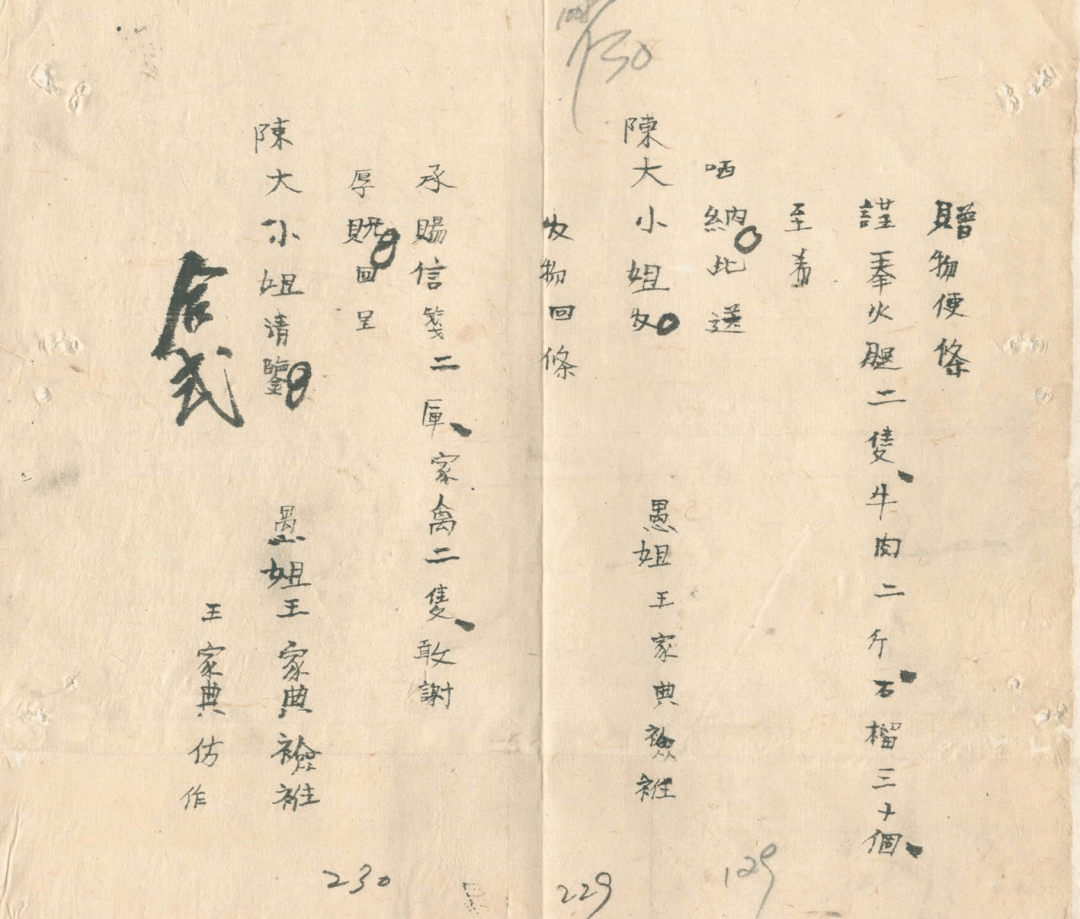 130
贈物便條
謹奉火腿二隻牛肉二斤石榴三十個
至希
哂納此送
陳大小姐收 愚姐王家典襝衽
收物回條
承賜信箋二匣家禽二隻敢謝
厚貺回呈
陳大小姐清鑒 愚姐王家典襝衽
王家典仿作
合式
129
229
230